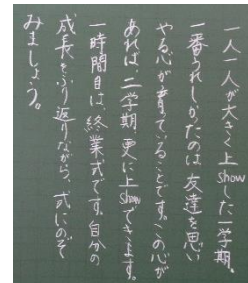 一人一人が大きく上showした一学期。
一番うれしかったのは、友達を思い
やる心が育っていることです。この心が
あれば、二学期更に上showできます。
一時間目は、終業式です。自分の
成長をふり返りながら、式にのぞ
みましょう。